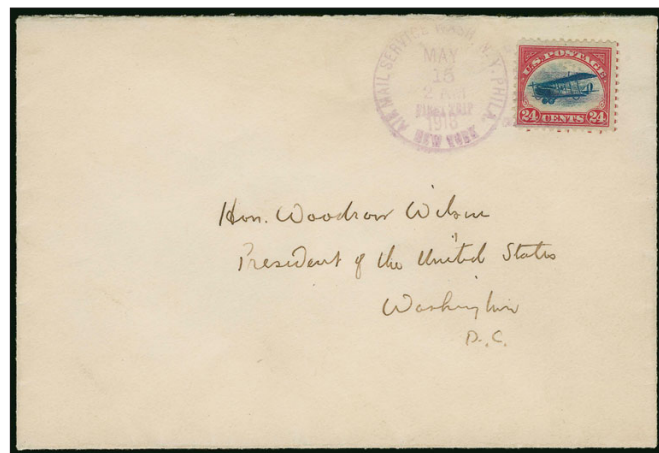 AIR MAIL SERVICE WASH. N.Y. PHILA.
MAY
15
FIRST TRIP
1918
U.S. POSTAGE
24 CENTS 24
Hon. Woodrow Wilson
President of the United States
Washington
D.C.